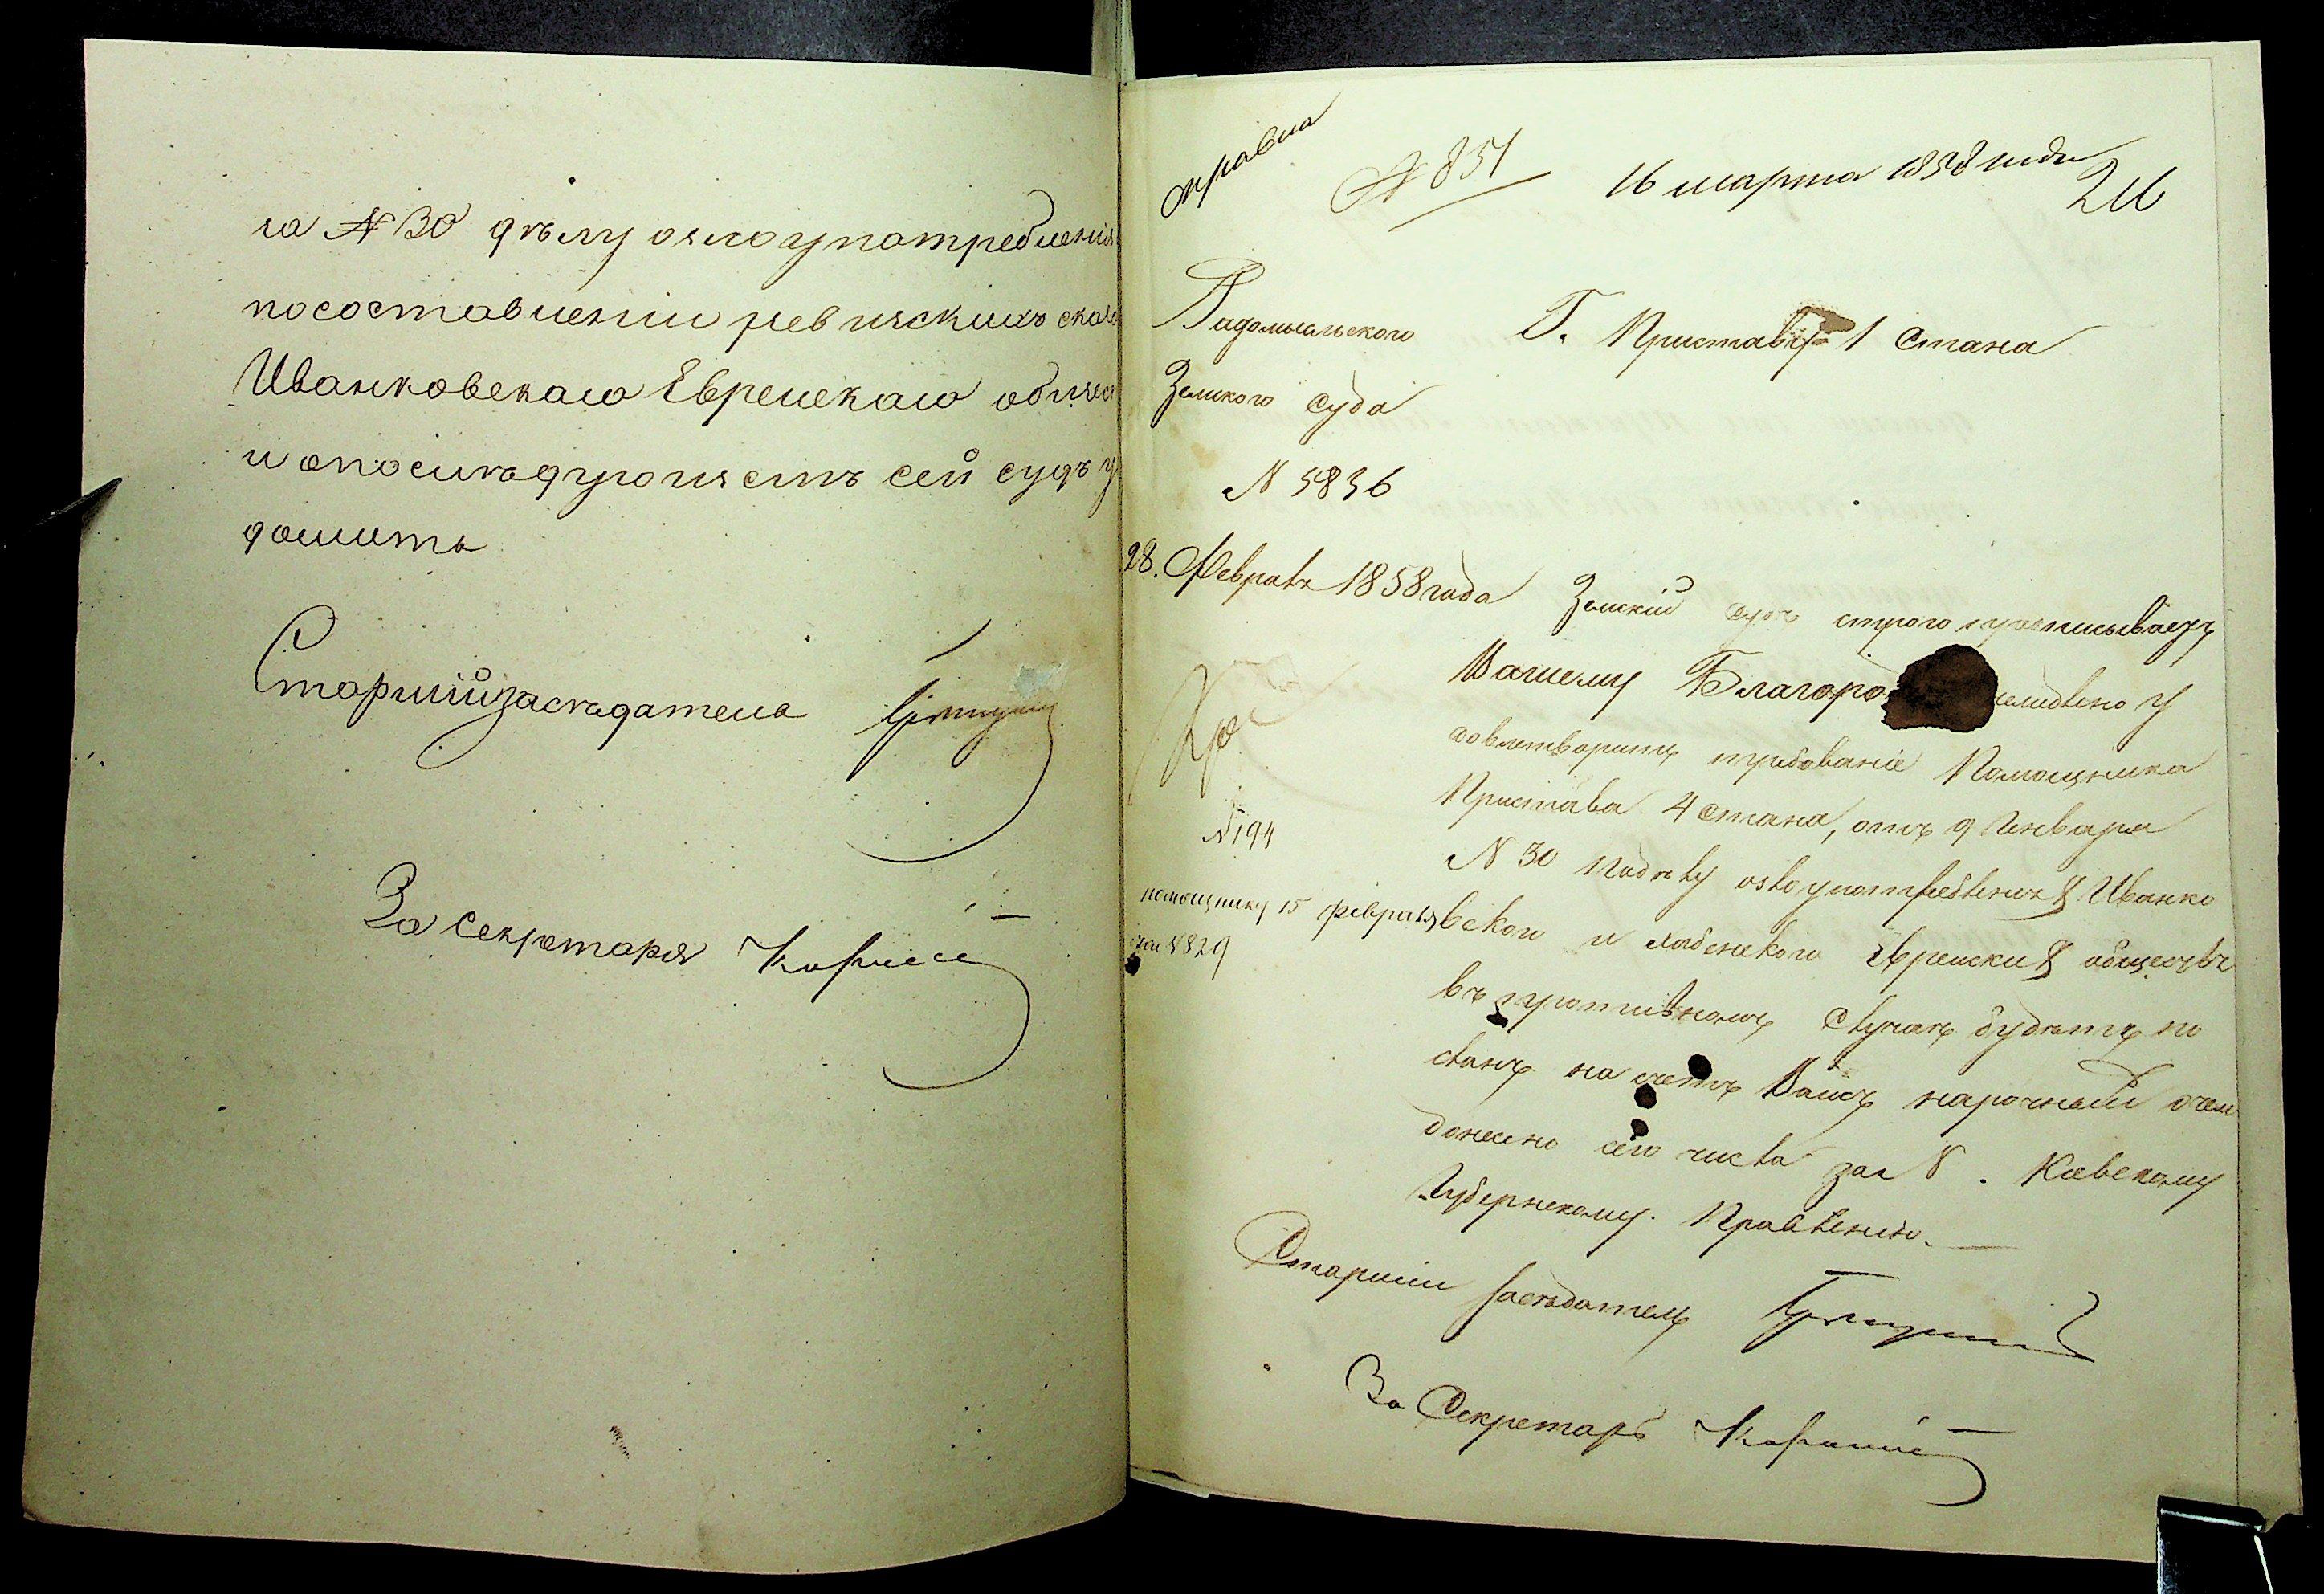 за № 30 дѣлу о злоупотребленія
по составленіи ревизскихъ сказ
Иванковскаго Еврейскаго общес
и о послѣдующемъ сей судъ у
домить
Старшій засѣдатель
За секретаря
№ 851 16 марта 1858 года
26
Радомысльского Г. Приставу 1 стана
Земского суда
№ 5836
28. Февраля 1858 года
Земскій судъ строго предписываетъ
Вашему Благоро немедлено у
довлетворить требованіе Помощника
Пристава 4 стана, отъ 9 Генваря
№ 30 по дѣлу о злоупотребленіях Иванко
вскаго и Хабенского Еврейских обществъ
въ противномъ случаѣ будѣтъ по
сланъ на счетъ Вашъ нарочный о чем
донесено сего числа за № . Киевскому
Губернскому Правленію.
№ 194
помощнику 15 февраля
за № 329
Старшій Засѣдатель
За Секретаря